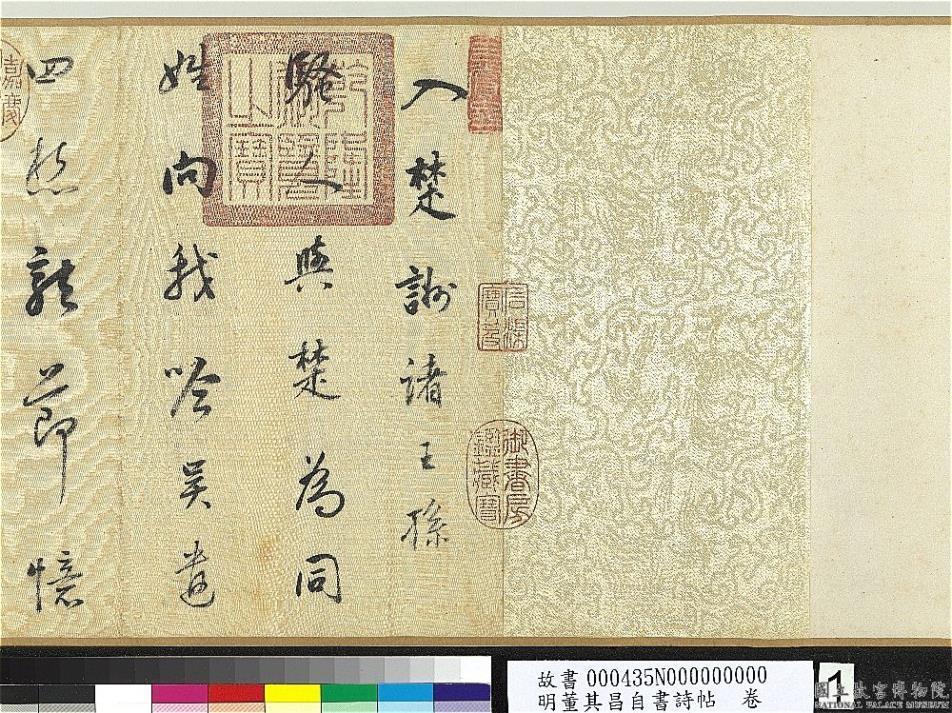 三希堂
石渠寶笈
御書房鑑藏寶
入楚謝諸王孫
乾隆御覽之寶
騷人與楚為同
姓向我吟吳遣
四愁龍節憶
嘉慶
故書 000435N000000000
明董其昌自書詩帖 卷
1
國立故宮博物院
NATIONAL PALACE MUSEUM